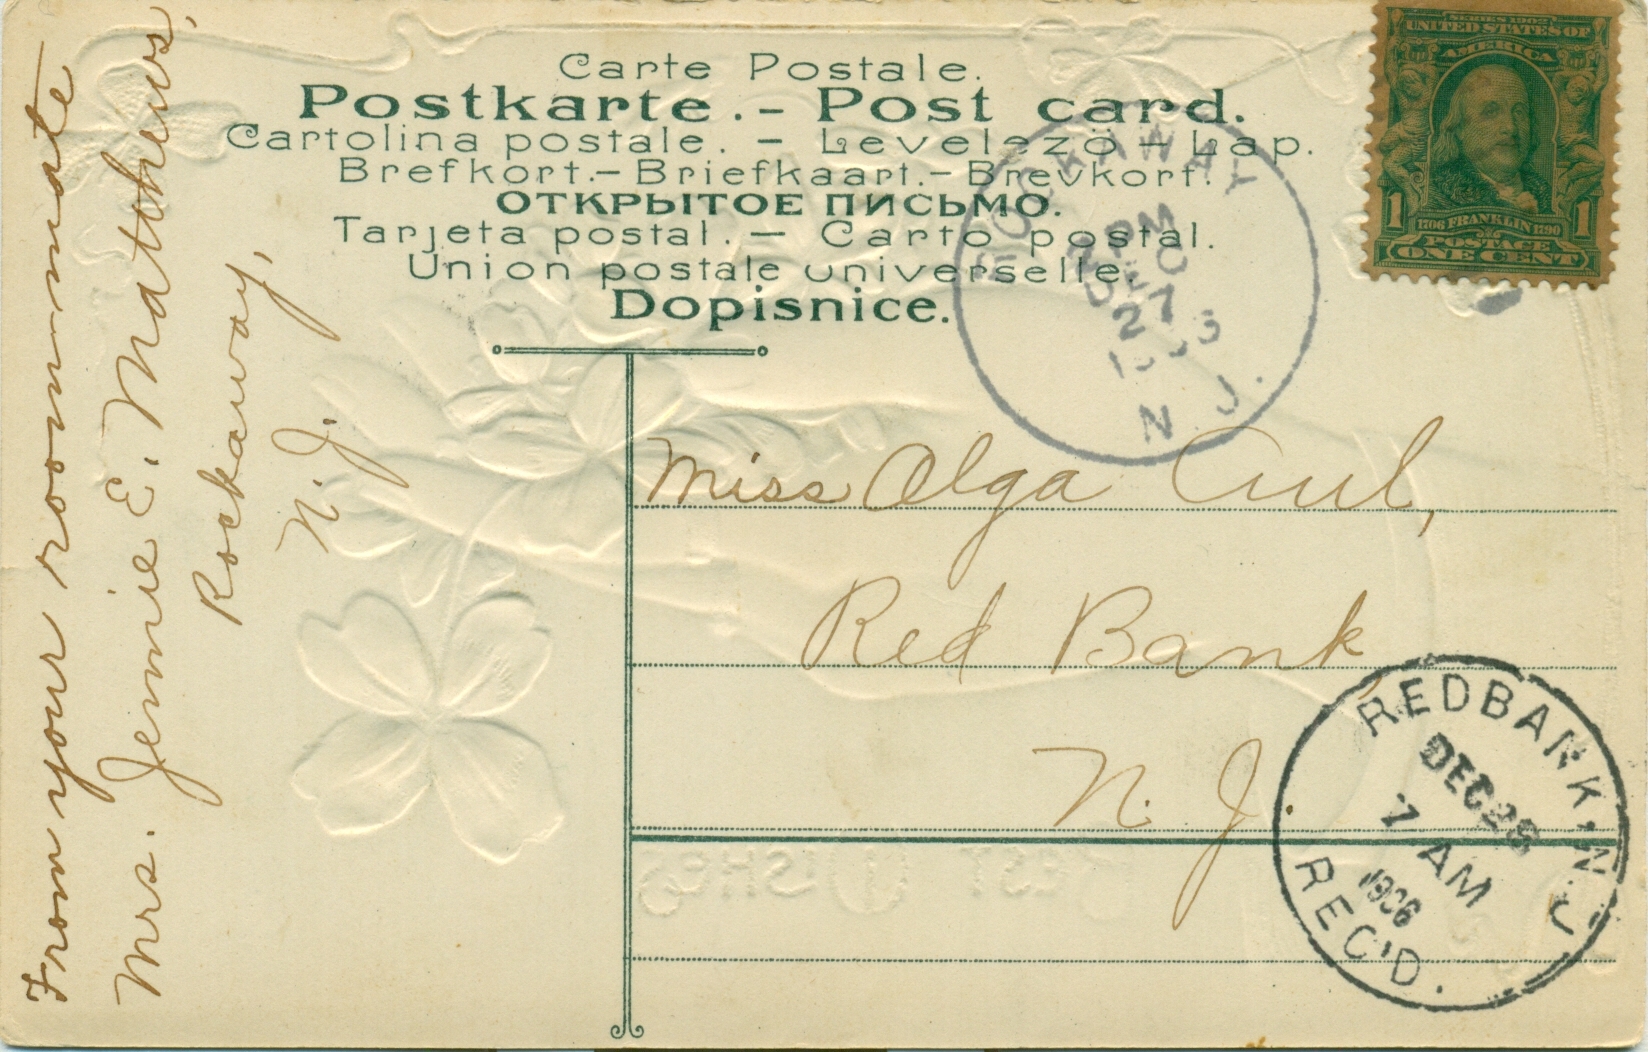 Carte Postale.
Postkarte. - Post card.
Cartolina postale. — Levelező-Lap.
Brefkort.—Briefkaart.—Brevkort.
ОТКРЫТОЕ ПИСЬМО.
Tarjeta postal. — Carto postal.
Union postale universelle.
Dopisnice.
SERIES 1902
UNITED STATES OF
AMERICA
1 1
1706 FRANKLIN 1790
POSTAGE
ONE CENT
ROCKAWAY
DEC
27
N J.
From your roommate
Mrs. Jennie E. Matthews,
Rockaway,
N. J.
Miss Olga
Red Bank,
N. J.
RED BANK, N J
DEC 28
7 AM
1906
REC'D.
BEST WISHES